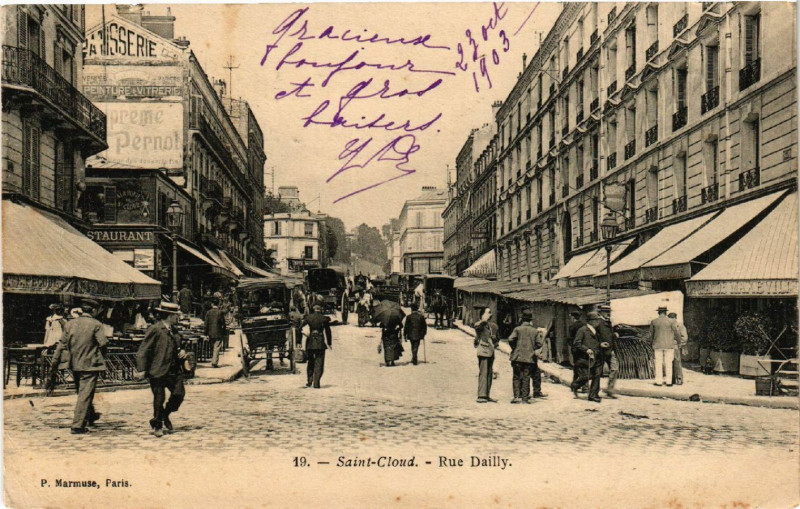 Gracieux
bonjour
et gros
baisers.
23 oct
1903
ANISSERIE
PEINTURE & VITRERIE
Supreme
Pernot
STAURANT
19. — Saint-Cloud. - Rue Dailly.
P. Marmuse, Paris.